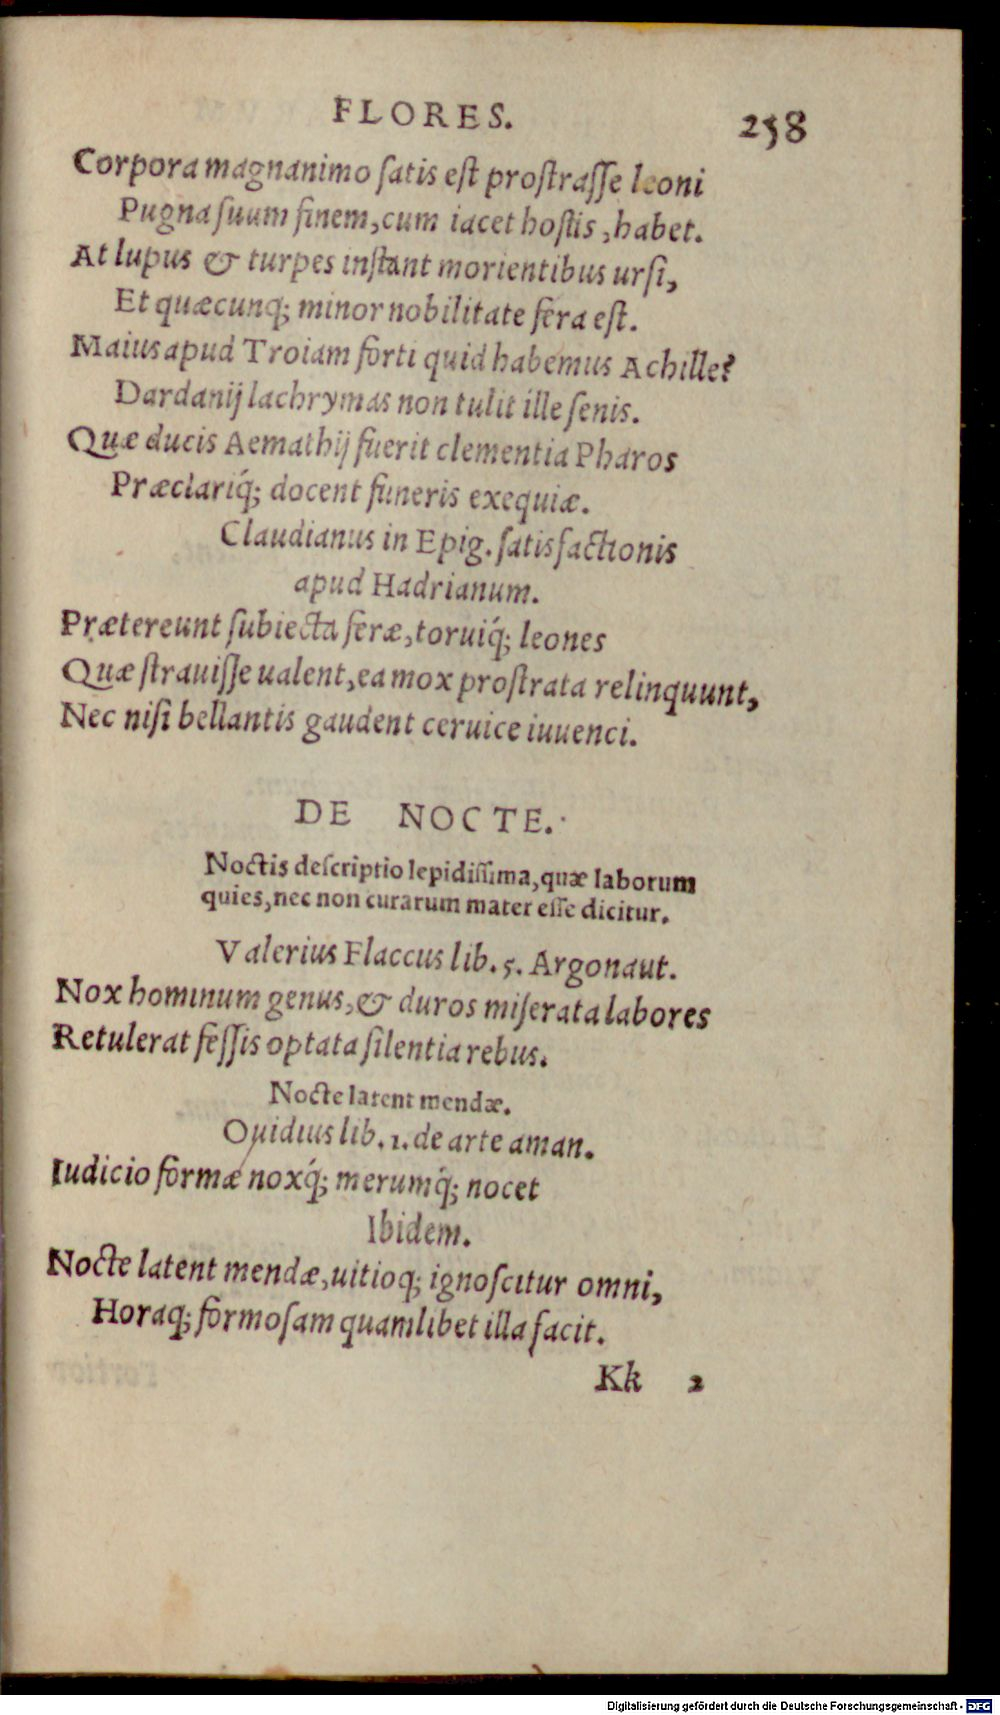 FLORES. 258
Corpora magnanimo ſatis eſt proſtraſſe leoni
Pugna ſuum finem, cum iacet hoſtis, habet.
At lupus & turpes inſtant morientibus urſi,
Et quæcunq; minor nobilitate fera eſt.
Maius apud Troiam forti quid habemus Achille?
Dardanij lachrymas non tulit ille ſenis.
Quæ ducis Aemathij fuerit clementia Pharos
Præclariq́; docent funeris exequiæ.
Claudianus in Epig. ſatisfactionis
apud Hadrianum.
Prætereunt ſubiecta feræ, toruiq́; leones
Quæ ſtrauiſſe ualent, ea mox proſtrata relinquunt,
Nec niſi bellantis gaudent ceruice iuuenci.
DE NOCTE.
Noctis deſcriptio lepidiſſima, quæ laborum
quies, nec non curarum mater eſſe dicitur.
Valerius Flaccus lib. 5. Argonaut.
Nox hominum genus, & duros miſerata labores
Retulerat feſſis optata ſilentia rebus.
Nocte latent mendæ.
Ouidius lib. 1. de arte aman.
Iudicio formæ noxq́; merumq́; nocet
Ibidem.
Nocte latent mendæ, uitioq; ignoſcitur omni,
Horaq; formoſam quamlibet illa facit.
Kk 2
Digitalisierung gefördert durch die Deutsche Forschungsgemeinschaft - DFG